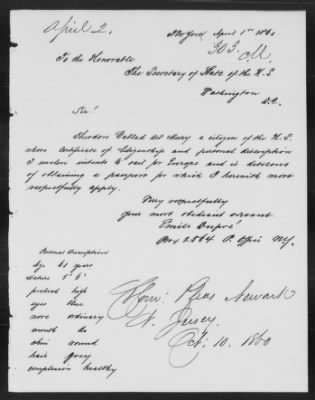 April 2.
New York April 1st 1860
303. M.
To the Honorable
The Secretary of State of the U.S
Washington
D.C.
Sir!
Theodore a citizen of the U.S.
whose certificate of Citizenship and personal description
I enclose intends to sail for Europe and is desirous
of obtaining a passport for which I herewith most
respectfully apply.
Very respectfully
Your most obedient servant
Emile Dupré
Box 2564 P. Office NY.
Personal Description
age 61 years
stature 5' 6"
forehead high
eyes blue
nose ordinary
mouth do
chin round
hair gray
complexion healthy
Newark
N. Jersey.
Oct. 10. 1860